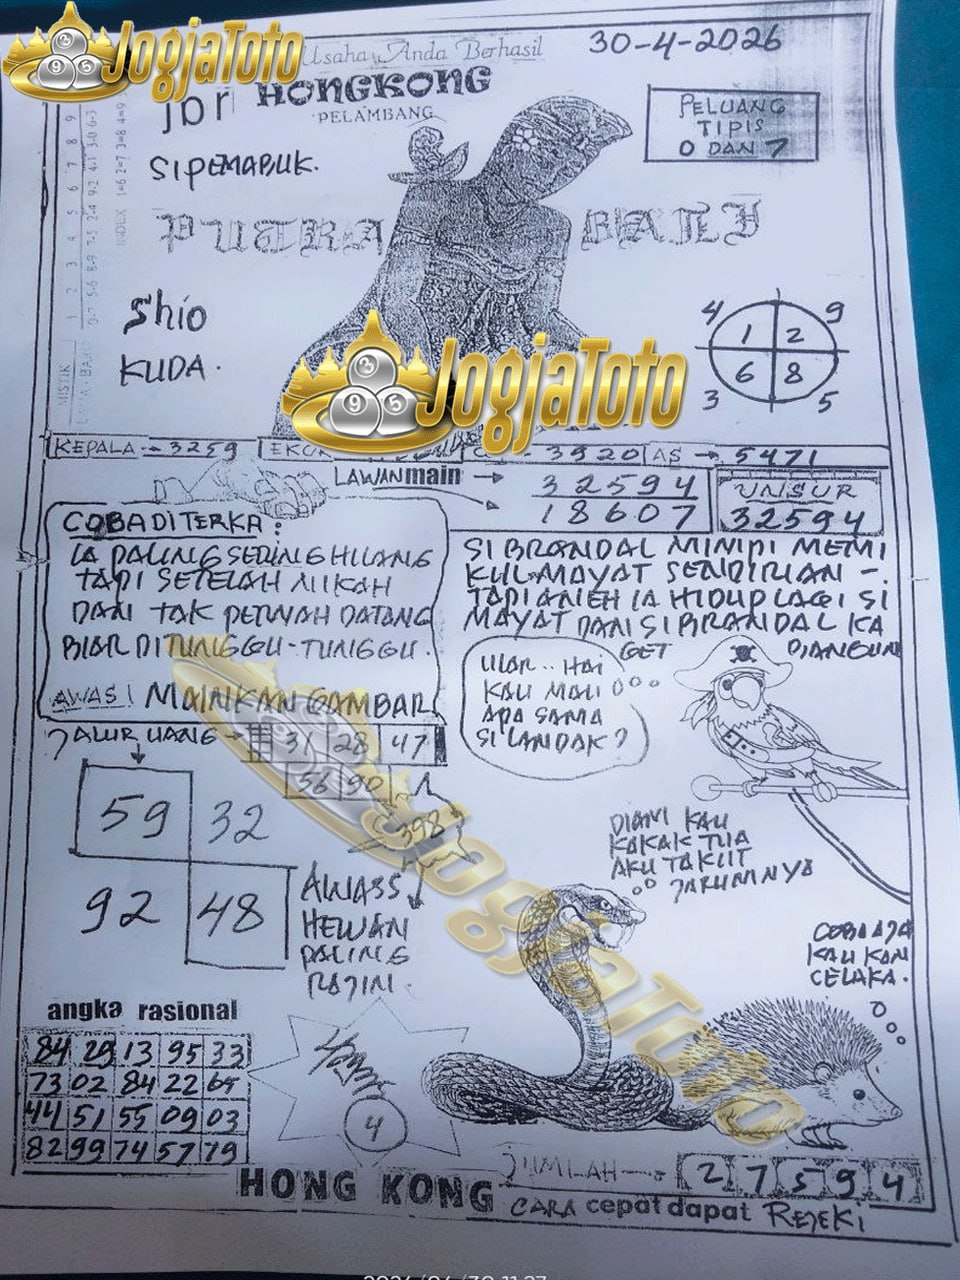 JogjaToto
Usaha Anda Berhasil
30-4-2026
HONGKONG
PELAMBANG
SIPEMABUK.
PELUANG
TIPIS
0 DAN 7
PUTRA BALI
Shio
KUDA.
4 9
1 2
6 8
3 5
INDEX 1=6 2=7 3=8 4=9
MISTIK
JogjaToto
KEPALA → 3259
3920 AS → 5471
LAWAN main → 32594
18607
UNSUR
32594
COBA DITERKA:
IA PALING SERING HILANG
TAPI SETELAH NIKAH
DAN TAK PERNAH DATANG
BIAR DITUNGGU-TUNGGU.
AWAS! MAINKAN GAMBAR
SI BRANDAL MIMPI MEMI
KUL MAYAT SENDIRIAN -.
TAPI ANEH IA HIDUP LAGI SI
MAYAT DAN SI BRANDAL KA
GET
DIANGUN
ULAR.. HAI
KAU MAU
APA SAMA
SI LANDAK?
JALUR UANG → 31 28 47
56 90
398
59 32
92 48
AWASS
HEWAN
PALING
RAJIN.
DIAM KAU
KAKAK TUA
AKU TAKUT
JARUMNYA
COBA AJA
KAU KAN
CELAKA.
JogjaToto
angka rasional
84 29 13 95 33
73 02 84 22 65
44 51 55 09 03
82 99 74 57 79
4
JUMLAH → 2 7 5 9 4
HONG KONG
CARA cepat dapat REJEKI